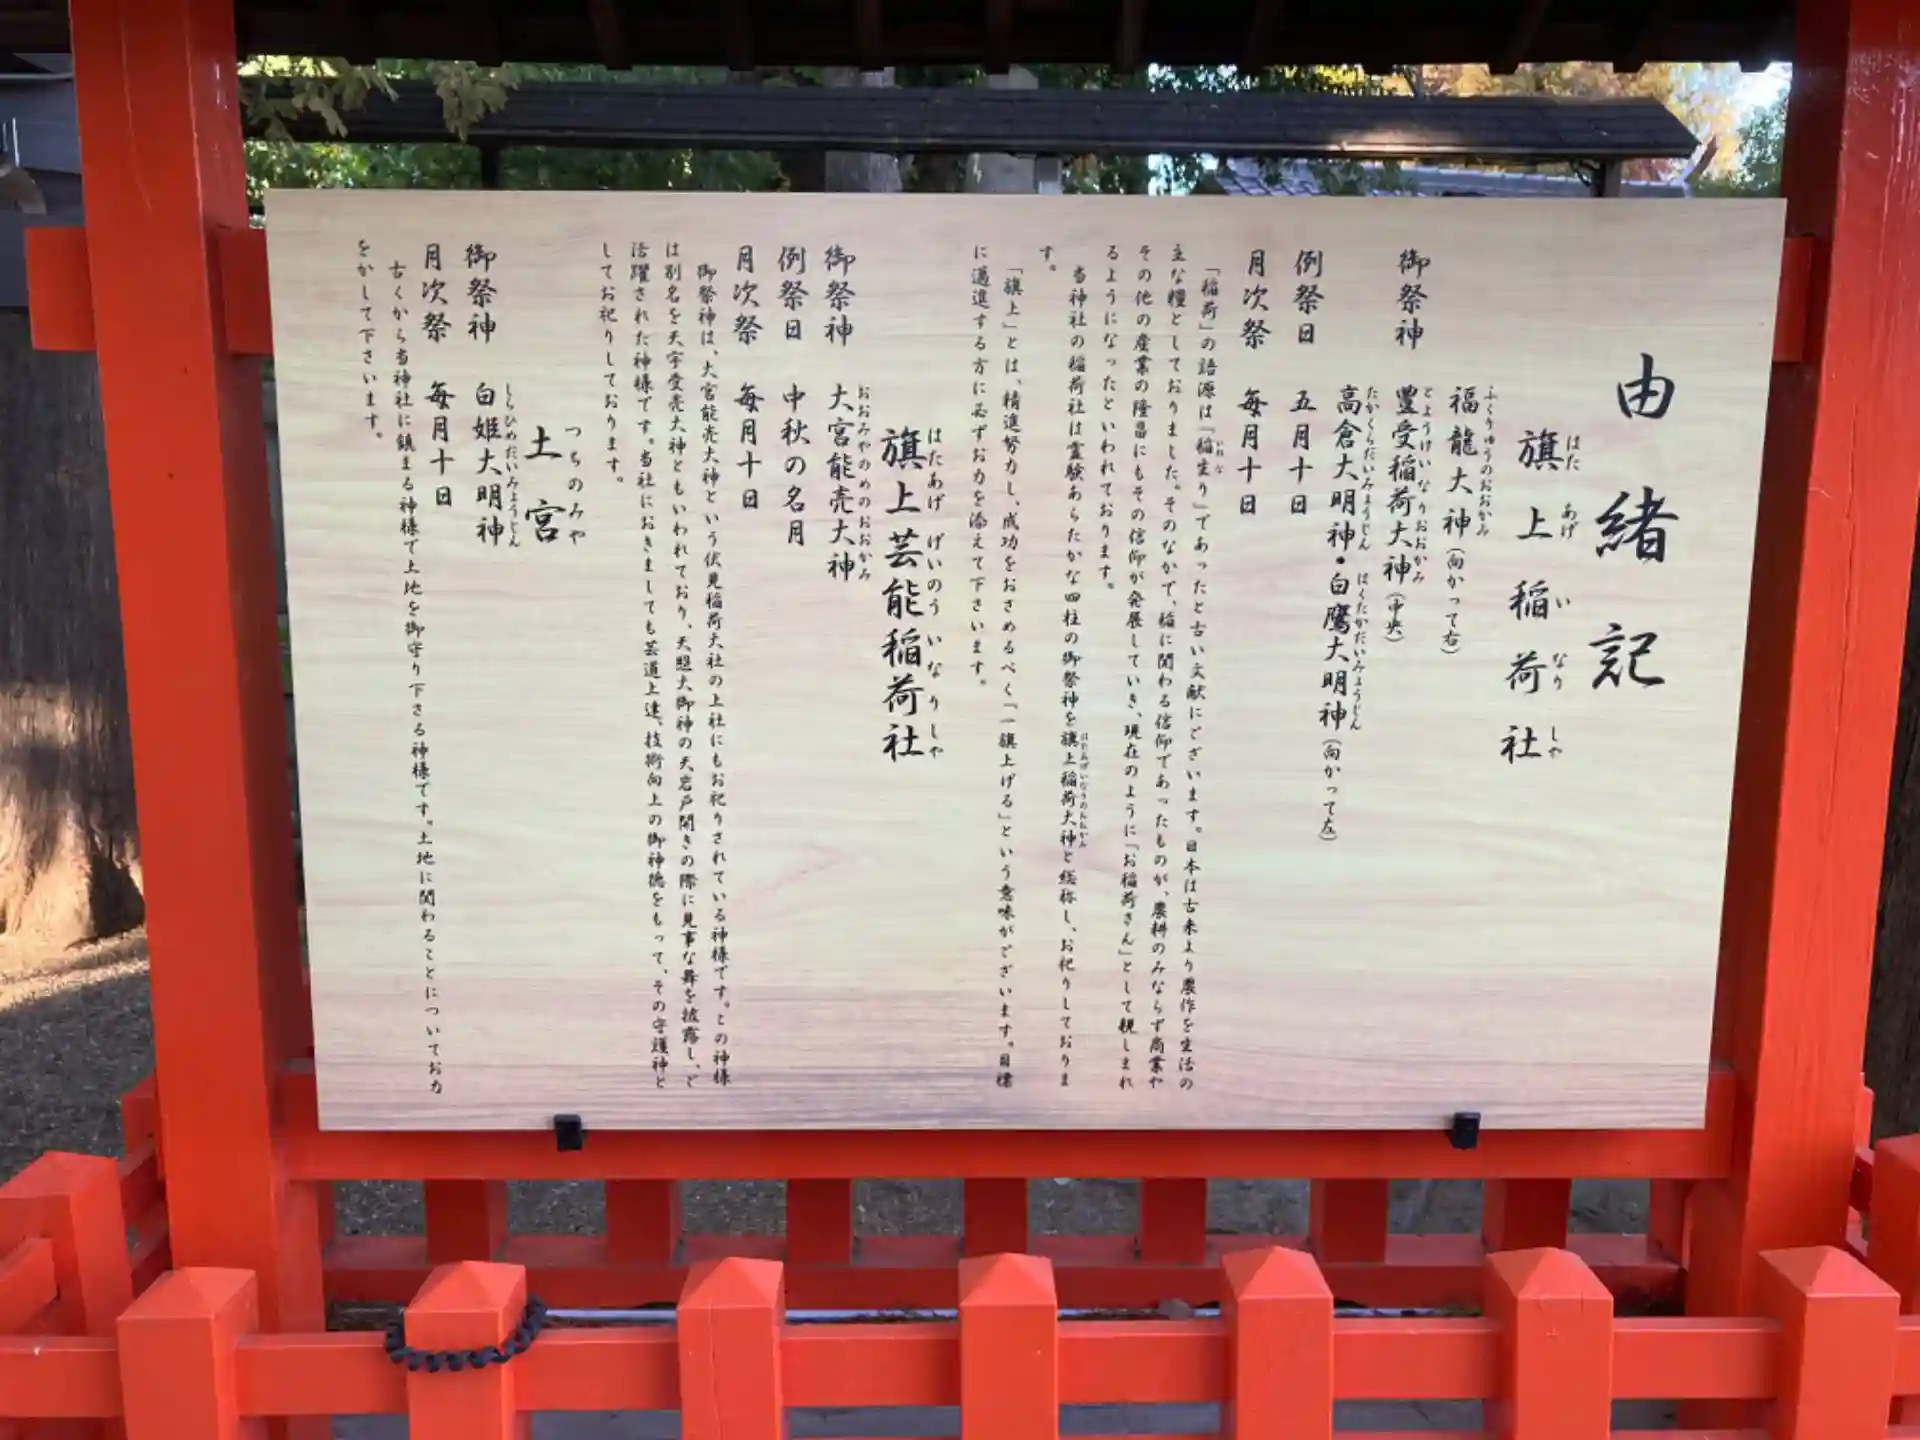 由緒記
旗上稲荷社
はた あげ い なり しや
御祭神 福龍大神(向かって右)
ふくりゅうのおおかみ
豊受稲荷大神(中央)
とようけいなりおおかみ
高倉大明神・白鷹大明神(向かって左)
たかくらだいみょうじん はくたかだいみょうじん
例祭日 五月十日
月次祭 毎月十日
「稲荷」の語源は「稲生り」であったと古い文献にございます。日本は古来より農作を生活の
いねな
主な糧としておりました。そのなかで、稲に関わる信仰であったものが、農耕のみならず商業や
その他の産業の隆昌にもその信仰が発展していき、現在のように「お稲荷さん」として親しまれ
るようになったといわれております。
当神社の稲荷社は霊験あらたかな四柱の御祭神を旗上稲荷大神と総称し、お祀りしておりま
はたあげいなりのおおかみ
す。
「旗上」とは、精進努力し、成功をおさめるべく「一旗上げる」という意味がございます。目標
に邁進する方に必ずお力を添えて下さいます。
旗上芸能稲荷社
はたあげ げいのう いなり しや
御祭神 大宮能売大神
おおみやのめのおおかみ
例祭日 中秋の名月
月次祭 毎月十日
御祭神は、大宮能売大神という伏見稲荷大社の上社にもお祀りされている神様です。この神様
は別名を天宇受売大神ともいわれており、天照大御神の天岩戸開きの際に見事な舞を披露し、ご
活躍された神様です。当社におきましても芸道上達、技術向上の御神徳をもって、その守護神と
してお祀りしております。
土宮
つちのみや
御祭神 白姫大明神
しらひめだいみょうじん
月次祭 毎月十日
古くから当神社に鎮まる神様で土地を御守り下さる神様です。土地に関わることについてお力
をかして下さいます。